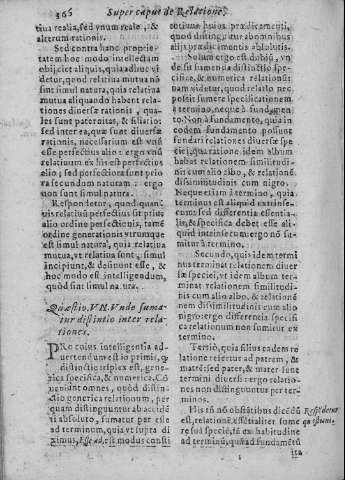 366 Super caput de Relatione,
tiua realia, sed vnum reale, &
alterum rationis.
Sed contra hanc proprie-
tatem hoc modo intellectam
obijciet aliquis, quia adhuc vi-
detur, quod relatiua mutua nō
sint simul natura, quia relatiua
mutua aliquando habent rela-
tiones diuersæ rationis, qua-
les sunt paternitas, & filiatio:
sed inter ea, quæ sunt diuersæ
rationis, necessarium est vnū
esse perfectius alio: ergo vnū
relatiuum ex his est perfectius
alio; sed perfectiora sunt prio
ra secundum naturam: ergo
non sunt simul natura.
Respondetur, quod quanuis
vis relatiuū perfectius sit prius
alio ordine perfectionis, tamē
ordine generationis vtrumque
est simul natura, quia relatiua
mutua, vt relatiua sunt, simul
incipiunt, & desinunt esse, &
hoc modo est intelligendum,
quod sint simul natura.
Quæstio. VII. Vnde suma-
tur distinctio inter rela-
tiones.
PRo cuius intelligentia ad-
uertendum est id primò, quod
distinctio triplex est, gene-
rica specifica, & numerica. Cō
tendunt omnes, quòd distin-
ctio generica relationum, per
quam distinguuntur ab accidē
ti absoluto, sumatur per esse
ad terminum, quia vt supra di
ximus, Esse ad, est modus consti
totiuus huius prædicamenti,
quod distinguitur ab omnibus
alijs prædicamentis absolutis.
Solum ergo est dubiū, vn-
de sumenda distinctio spe-
cifica, & numerica relationis:
nam videtur, quod relatio nec
possit sumere specificationem
à termino, neque à fundamen
to. Non à fundamento, quia in
eodem fundamento possunt
fundari relationes diuersæ spe
ciei, qua ratione idem album
habet relationem similitudi-
nis cum alio albo, & relationē
dissimilitudinis cum nigro.
Neque etiam à termino, quia
terminus est quid extrinse-
cum: sed differentia essentia-
lis, & specifica debet esse ali-
quid intrinsecum: ergo nō su-
mitur à termino.
Secundo, quia idem termi
nus terminat relationem diuer
sæ speciei, vt idem album ter-
minat relationem similitudi-
nis cum alio albo, & relatio-
nem dissimilitudinis cum alio
nigro: ergo differentia specifi-
ca relationum non sumitur ex
termino.
Tertiò, quia filius eadem re
latione refertur ad patrem, &
matrē: sed pater, & mater sunt
termini diuersi: ergo relatio-
nes non distinguuntur per ter
minos.
His tñ nō obstātibus dicēdū
est, relationē, essētialiter sume
re suā speciē, tā ex habitudine
ad terminū, quā ad fundamētū
Respōdetur
quæstioni.
ita